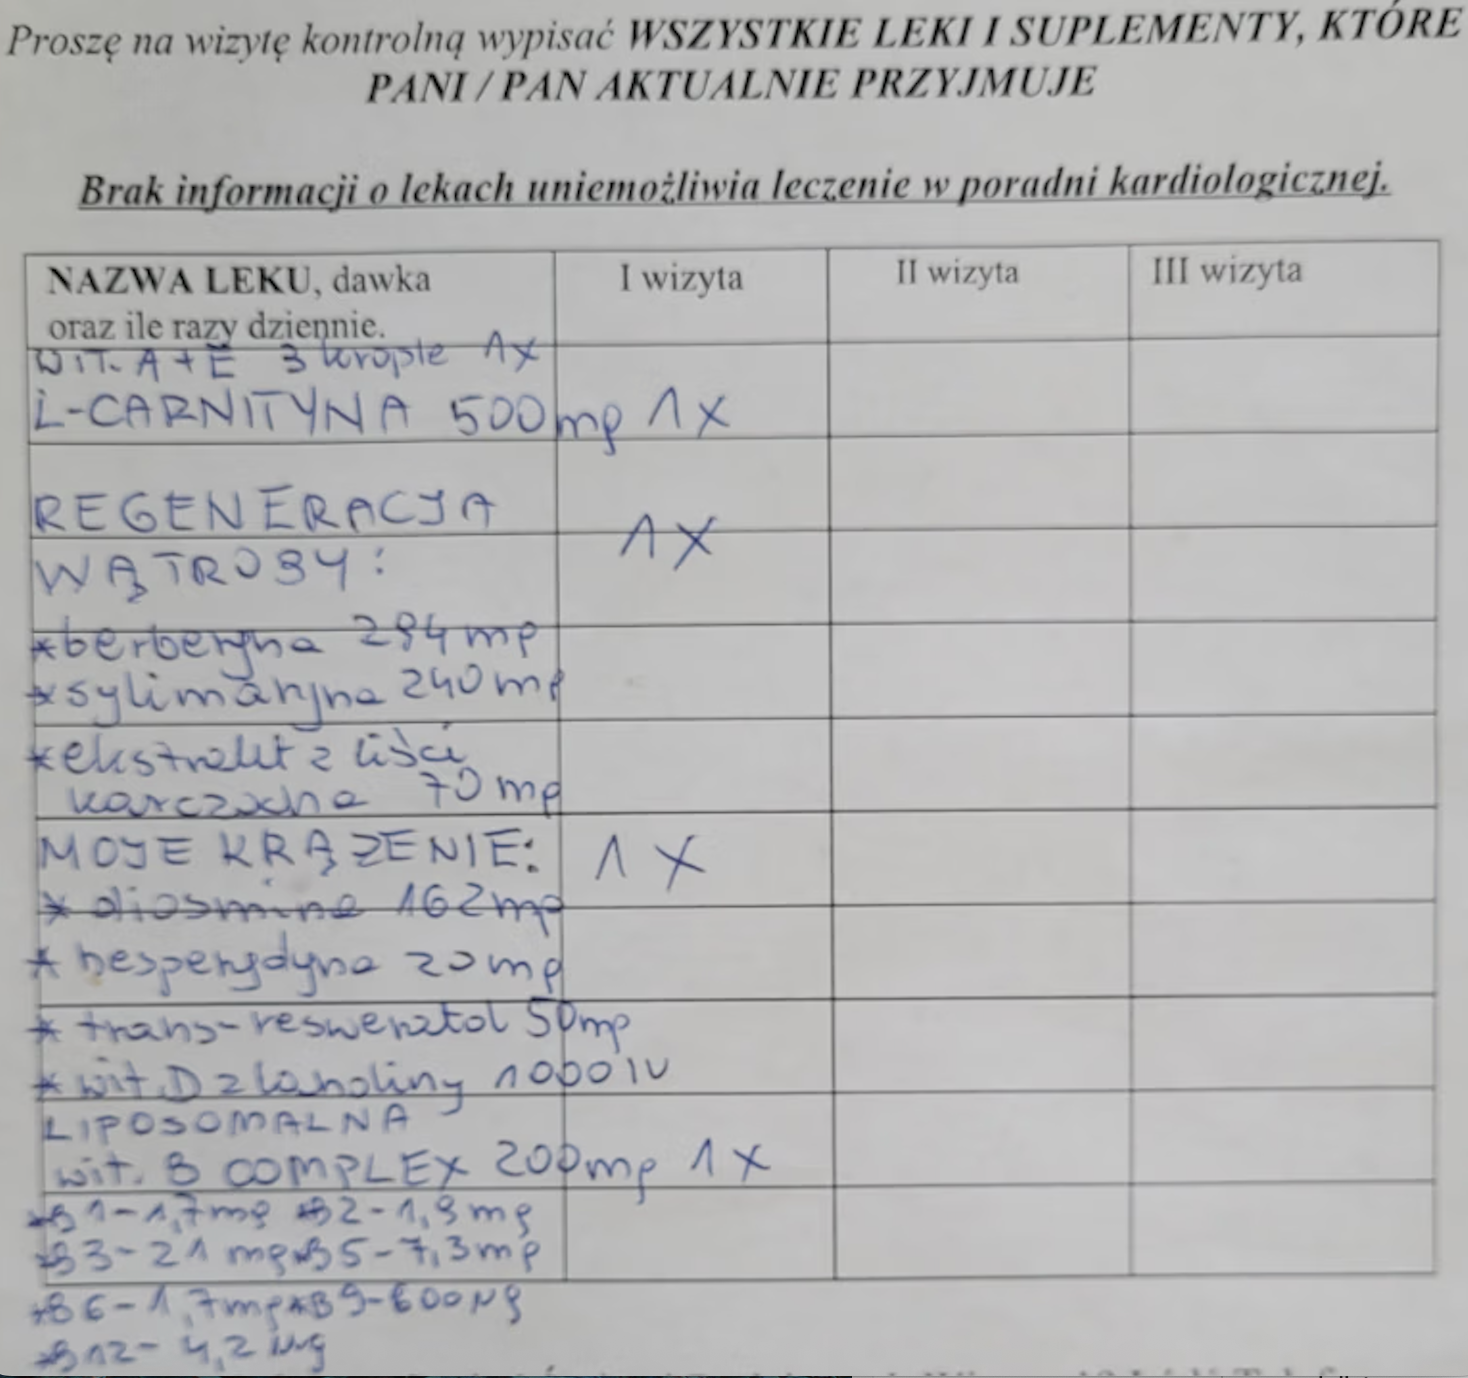 Proszę na wizytę kontrolną wypisać WSZYSTKIE LEKI I SUPLEMENTY, KTÓRE
PANI / PAN AKTUALNIE PRZYJMUJE
Brak informacji o lekach uniemożliwia leczenie w poradni kardiologicznej.
NAZWA LEKU, dawka I wizyta II wizyta III wizyta
oraz ile razy dziennie.
WIT. A + E 3 krople 1x
L-CARNITYNA 500mg 1x
REGENERACJA
WĄTROBY: 1x
*berberyna 294mg
*sylimaryna 240mg
*ekstrakt z liści
karczocha 70mg
MOJE KRĄŻENIE: 1x
* diosmina 162mg
* hesperydyna 20mg
* trans-resweratol 50mg
* wit. D z lanoliny 1000 IU
LIPOSOMALNA
wit. B COMPLEX 200mg 1x
*B1-1,7mg *B2-1,9mg
*B3-21mg *B5-7,3mg
*B6-1,7mg *B9-600µg
*B12-4,2µg